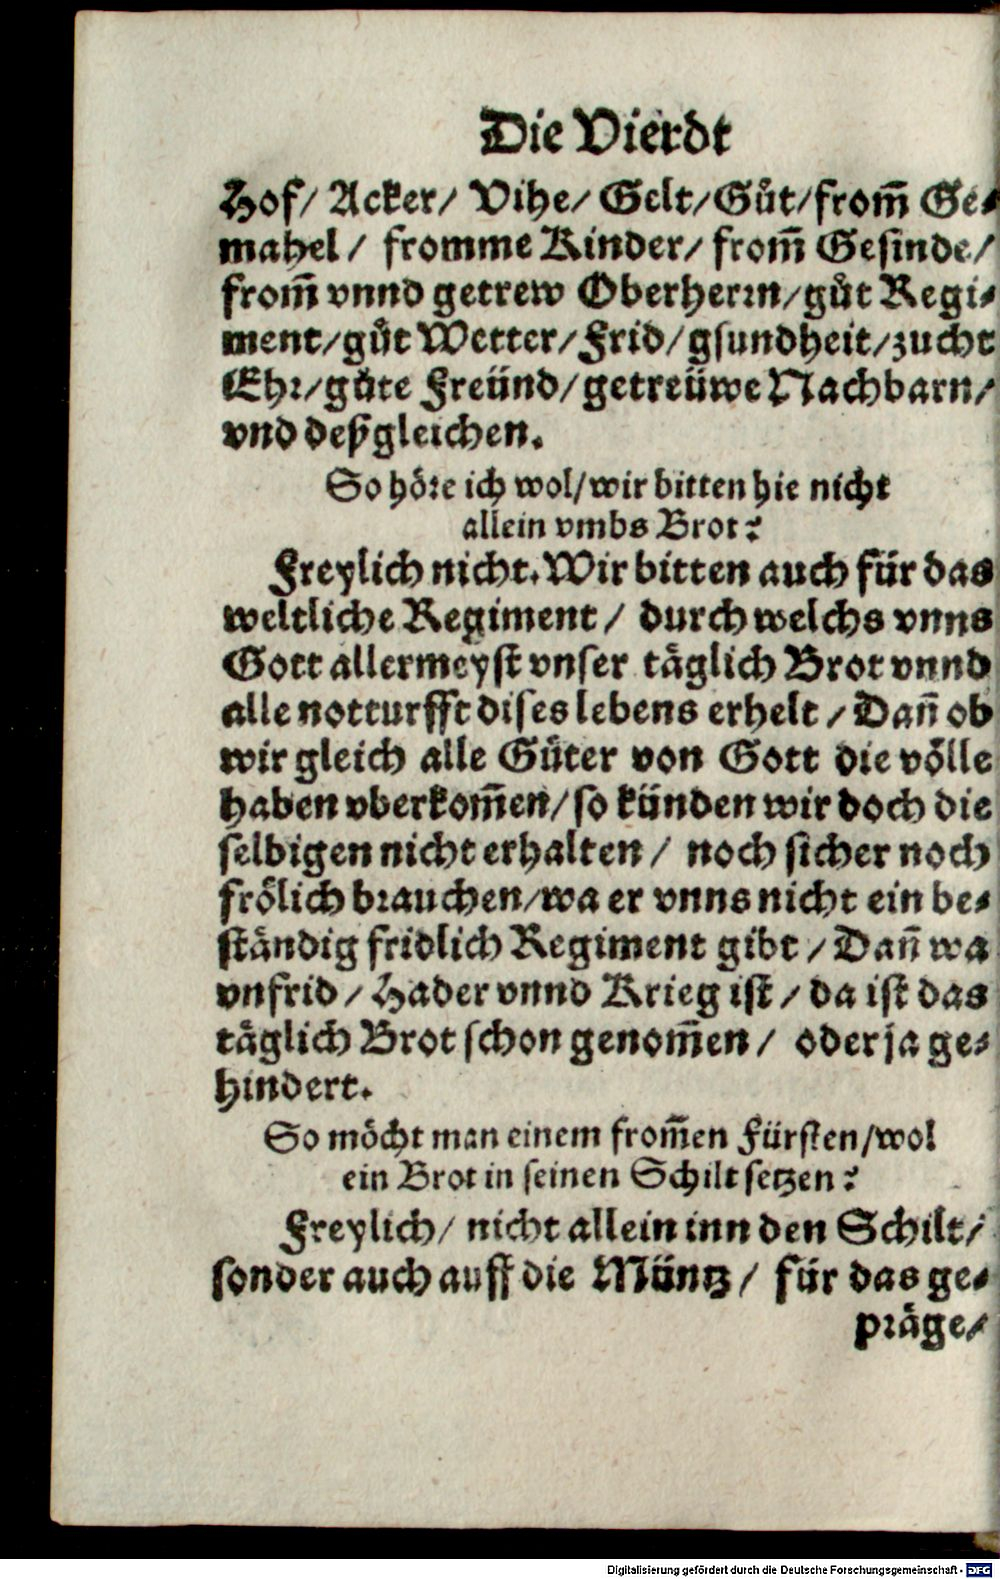 Die Vierdt
Hof/ Acker/ Vihe/ Gelt/Gůt/from̃ Ge⸗
mahel/ fromme Kinder/ from̃ Gesinde/
from̃ vnnd getrew Oberherꝛn/gůt Regi⸗
ment/gůt Wetter/Frid/gsundheit/zucht
Ehꝛ/gůte Freünd/getreüwe Nachbarn/
vnd deßgleichen.
So höꝛe ich wol/wir bitten hie nicht
allein vmbs Brot?
Freylich nicht. Wir bitten auch für das
weltliche Regiment/ durch welchs vnns
Gott allermeyst vnser täglich Brot vnnd
alle notturfft dises lebens erhelt/ Dañ ob
wir gleich alle Güter von Gott die völle
haben vberkom̃en/so künden wir doch die
selbigen nicht erhalten/ noch sicher noch
frölich bꝛauchen/wa er vnns nicht ein be⸗
ständig fridlich Regiment gibt/ Dañ wa
vnfrid/ Hader vnnd Krieg ist/ da ist das
täglich Brot schon genom̃en/ oder ja ge⸗
hindert.
So möcht man einem from̃en Fürsten/wol
ein Brot in seinen Schilt setzen?
Freylich/ nicht allein inn den Schilt/
sonder auch auff die Müntz/ für das ge⸗
pꝛäge/
Digitalisierung gefördert durch die Deutsche Forschungsgemeinschaft - DFG